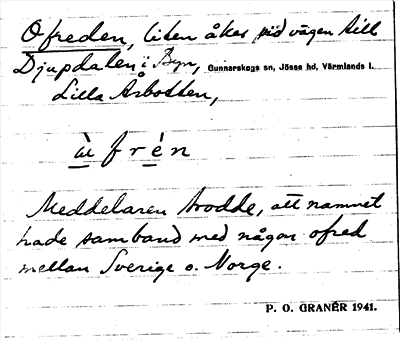 Ofreden, liten åker vid vägen till
Djupdalen i Byn, Gunnarskogs sn, Jösse hd, Värmlands l.
Lilla Årbotten,
ù f r è n
Meddelaren trodde, att namnet
hade samband med någon ofred
mellan Sverige o. Norge.
P. O. GRANÉR 1941.